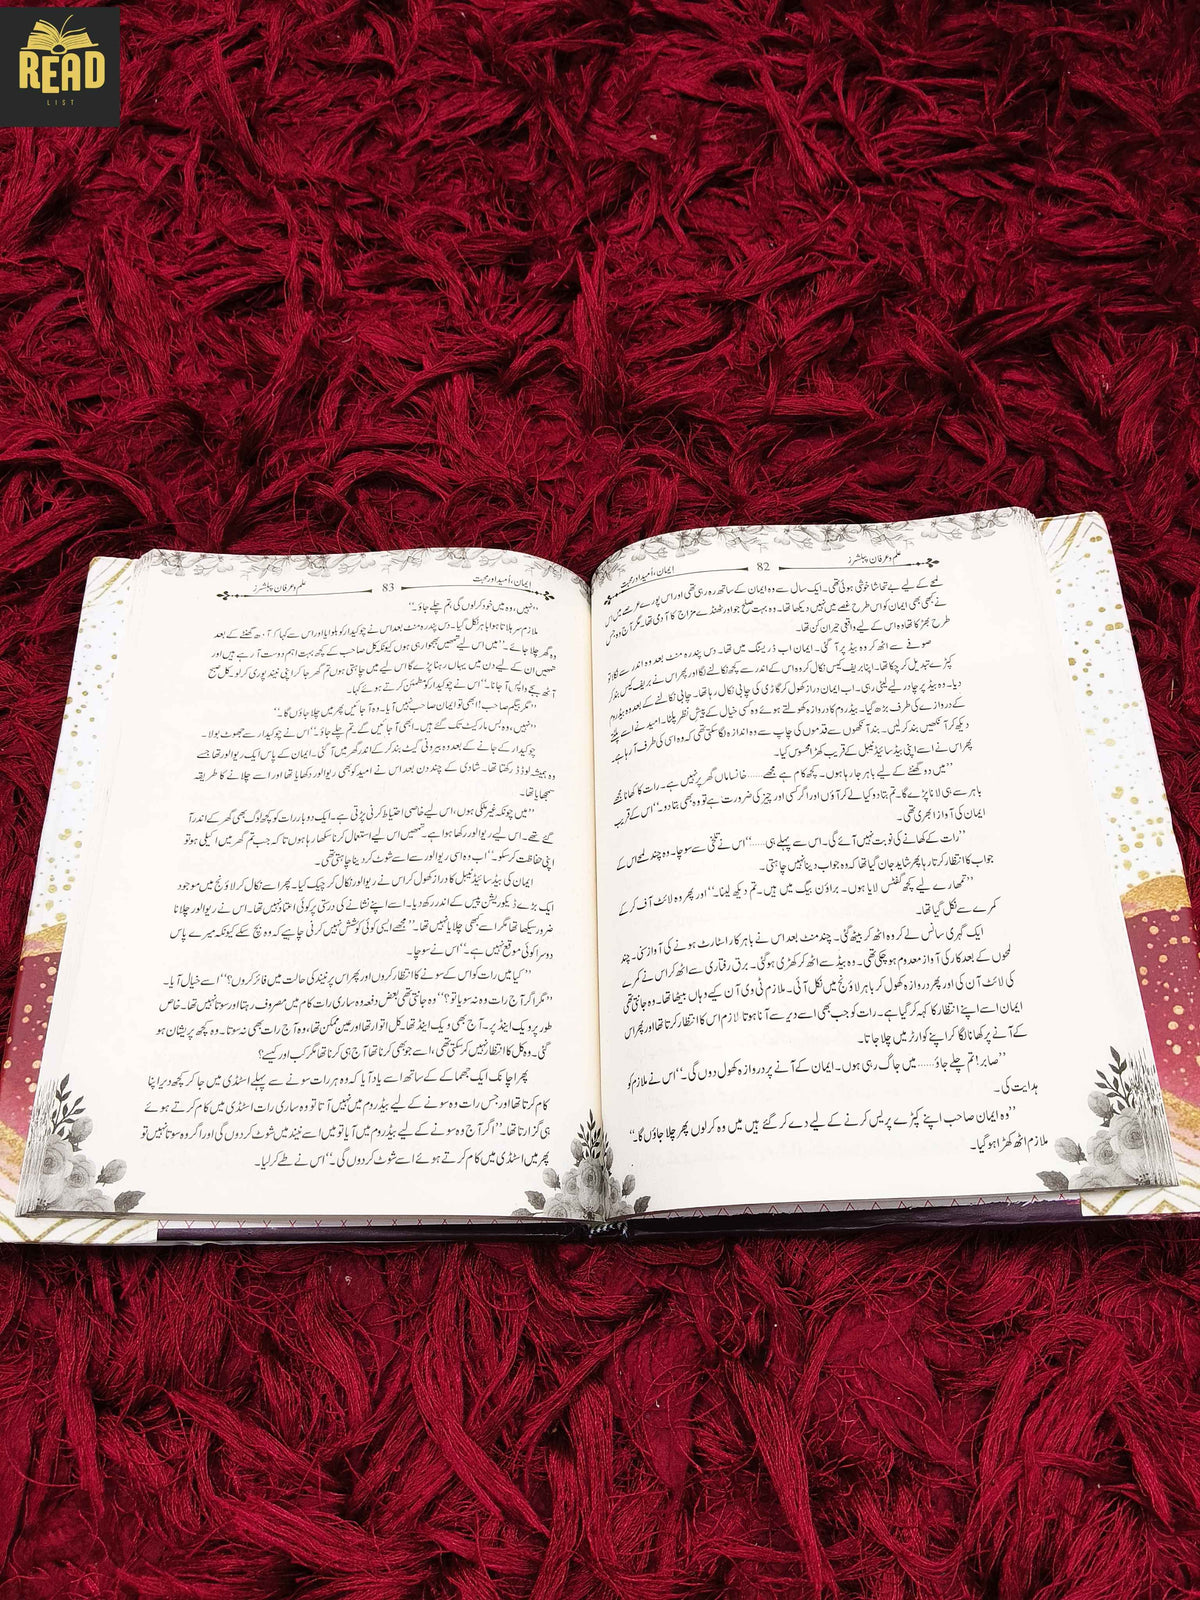 READ
LIST
علم و عرفان پبلشرز
82
ایمان، اُمید اور محبت
لمحے کے لیے بے تحاشا خوشی ہوئی تھی۔ ایک سال سے وہ ایمان کے ساتھ رہ رہی تھی اور اس پورے عرصے میں اس
نے کبھی بھی ایمان کو اس طرح غصے میں نہیں دیکھا تھا۔ وہ بہت صلح جو اور ٹھنڈے مزاج کا آدمی تھا۔ مگر آج وہ جس
طرح بھڑکا تھا وہ اس کے لیے واقعی حیران کن تھا۔
صوفے سے اٹھ کر وہ بیڈ پر آ گئی۔ ایمان اب ڈریسنگ میں تھا۔ دس پندرہ منٹ بعد وہ اندر سے نکلا تو
کپڑے تبدیل کر چکا تھا۔ اپنا بریف کیس نکال کر وہ اس کے اندر سے کچھ نکالنے لگا اور پھر اس نے بریف کیس بند کر
دیا۔ وہ بیڈ پر چادر لیے لیٹی رہی۔ اب ایمان دراز کھول کر گاڑی کی چابی نکال رہا تھا۔ چابی نکالنے کے بعد وہ بیڈروم
کے دروازے کی طرف بڑھ گیا۔ بیڈروم کا دروازہ کھولتے ہوئے وہ کسی خیال کے پیش نظر پلٹا۔ امید نے اسے پلٹتے
دیکھ کر آنکھیں بند کر لیں۔ بند آنکھوں سے قدموں کی چاپ سے وہ اندازہ لگا سکتی تھی کہ وہ اسی کی طرف آ رہا ہے۔
پھر اس نے اسے اپنی بیڈ سائیڈ ٹیبل کے قریب کھڑا محسوس کیا۔
”میں دو گھنٹے کے لیے باہر جا رہا ہوں۔ کچھ کام ہے مجھے...... خانساماں گھر پر نہیں ہے۔ رات کا کھانا مجھے
باہر سے ہی لانا پڑے گا۔ تم بتا دو کیا لے کر آؤں اور اگر کسی اور چیز کی ضرورت ہے تو وہ بھی بتا دو۔“ اس کے قریب
ایمان کی آواز ابھری تھی۔
”رات کے کھانے کی نوبت نہیں آئے گی۔ اس سے پہلے ہی......“ اس نے تلخی سے سوچا۔ وہ چند لمحے اس کے
جواب کا انتظار کرتا رہا پھر شاید جان گیا تھا کہ وہ جواب دینا نہیں چاہتی۔
”تمہارے لیے کچھ گفٹس لایا ہوں۔ براؤن بیگ میں ہیں۔ تم دیکھ لینا۔“ اور پھر وہ لائٹ آف کر کے
کمرے سے نکل گیا تھا۔
ایک گہری سانس لے کر وہ اٹھ کر بیٹھ گئی۔ چند منٹ بعد اس نے باہر کار اسٹارٹ ہونے کی آواز سنی۔ چند
لمحوں کے بعد کار کی آواز معدوم ہو چکی تھی۔ وہ بیڈ سے اٹھ کر کھڑی ہو گئی۔ برق رفتاری سے اٹھ کر اس نے کمرے
کی لائٹ آن کی اور پھر دروازہ کھول کر باہر لاؤنج میں نکل آئی۔ ملازم ٹی وی آن کیے وہاں بیٹھا تھا۔ وہ جانتی تھی
ایمان اسے اپنے انتظار کا کہہ کر گیا ہے۔ رات کو جب بھی اسے دیر سے آنا ہوتا ملازم اس کا انتظار کرتا تھا اور پھر اس
کے آنے پر کھانا لگا کر اپنے کوارٹر میں چلا جاتا۔
”صابر! تم چلے جاؤ...... میں جاگ رہی ہوں۔ ایمان کے آنے پر دروازہ کھول دوں گی۔“ اس نے ملازم کو
ہدایت کی۔
”وہ ایمان صاحب اپنے کپڑے پریس کرنے کے لیے دے کر گئے ہیں میں وہ کر لوں پھر چلا جاؤں گا۔“
ملازم اٹھ کھڑا ہو گیا۔
ایمان، اُمید اور محبت
83
علم و عرفان پبلشرز
”نہیں، وہ میں خود کر لوں گی تم چلے جاؤ۔“
ملازم سر ہلاتا ہوا باہر نکل گیا۔ دس پندرہ منٹ بعد اس نے چوکیدار کو بلوایا اور اس سے کہا کہ آدھ گھنٹے کے بعد
وہ گھر چلا جائے۔ ”میں اس لیے تمہیں بھجوا رہی ہوں کیونکہ کل صاحب کے کچھ بہت اہم دوست آ رہے ہیں اور
تمہیں ان کے لیے دن میں یہاں رہنا پڑے گا اس لیے میں چاہتی ہوں تم گھر جا کر اپنی نیند پوری کر لو۔ کل صبح
آٹھ بجے واپس آ جانا۔“ اس نے چوکیدار کو مطمئن کرتے ہوئے کہا۔
”مگر بیگم صاحب! ابھی تو ایمان صاحب نہیں آیا۔ وہ آ جائیں پھر میں چلا جاؤں گا۔“
”نہیں، وہ بس مارکیٹ تک گئے ہیں ابھی آ جائیں گے۔ تم چلے جاؤ۔“ اس نے چوکیدار سے جھوٹ بولا۔
چوکیدار کے جانے کے بعد وہ بیرونی گیٹ بند کر کے اندر گھر میں آ گئی۔ ایمان کے پاس ایک ریوالور تھا جسے
وہ ہمیشہ لوڈڈ رکھتا تھا۔ شادی کے چند دن بعد اس نے امید کو بھی ریوالور دکھایا تھا اور اسے چلانے کا طریقہ
سمجھایا تھا۔
”میں چونکہ غیر ملکی ہوں، اس لیے خاصی احتیاط کرنی پڑتی ہے۔ ایک دو بار رات کو کچھ لوگ بھی گھر کے اندر آ
گئے تھے۔ اس لیے ریوالور رکھا ہوا ہے۔ تمہیں اس لیے استعمال کرنا سکھا رہا ہوں تا کہ جب تم گھر میں اکیلی ہو تو
اپنی حفاظت کر سکو۔“ اب وہ اسی ریوالور سے اسے شوٹ کر دینا چاہتی تھی۔
ایمان کی بیڈ سائیڈ ٹیبل کا دراز کھول کر اس نے ریوالور نکال کر چیک کیا۔ پھر اسے نکال کر لاؤنج میں موجود
ایک بڑے ڈیکوریشن پیس کے اندر رکھ دیا۔ اسے اپنے نشانے کی درستی پر کوئی اعتماد نہیں تھا۔ اس نے ریوالور چلانا
ضرور سیکھا تھا مگر اسے کبھی چلایا نہیں تھا۔ ”مجھے ایسی کوئی کوشش نہیں کرنی چاہیے کہ وہ بچ سکے کیونکہ میرے پاس
دوسرا کوئی موقع نہیں ہے۔“ اس نے سوچا۔
”کیا میں رات کو اس کے سونے کا انتظار کروں اور پھر اس پر نیند کی حالت میں فائر کروں؟“ اسے خیال آیا۔
”مگر اگر آج رات وہ نہ سویا تو؟“ وہ جانتی تھی بعض دفعہ وہ ساری رات کام میں مصروف رہتا اور سوتا نہیں تھا۔ خاص
طور پر ویک اینڈ پر۔ آج بھی ویک اینڈ تھا۔ کل اتوار تھا اور عین ممکن تھا، وہ آج رات بھی نہ سوتا۔ وہ کچھ پریشان ہو
گئی۔ وہ کل کا انتظار نہیں کر سکتی تھی، اسے جو بھی کرنا تھا آج ہی کرنا تھا مگر کب اور کیسے؟
پھر اچانک ایک جھماکے کے ساتھ اسے یاد آیا کہ وہ ہر رات سونے سے پہلے اسٹڈی میں جا کر کچھ دیر اپنا
کام کرتا تھا اور جس رات وہ سونے کے لیے بیڈروم میں نہیں آتا تو وہ ساری رات اسٹڈی میں کام کرتے ہوئے
ہی گزارتا تھا۔ ”اگر آج وہ سونے کے لیے بیڈروم میں آیا تو میں اسے نیند میں شوٹ کر دوں گی اور اگر وہ سوتا نہیں تو
پھر میں اسٹڈی میں کام کرتے ہوئے اسے شوٹ کر دوں گی۔“ اس نے طے کر لیا۔